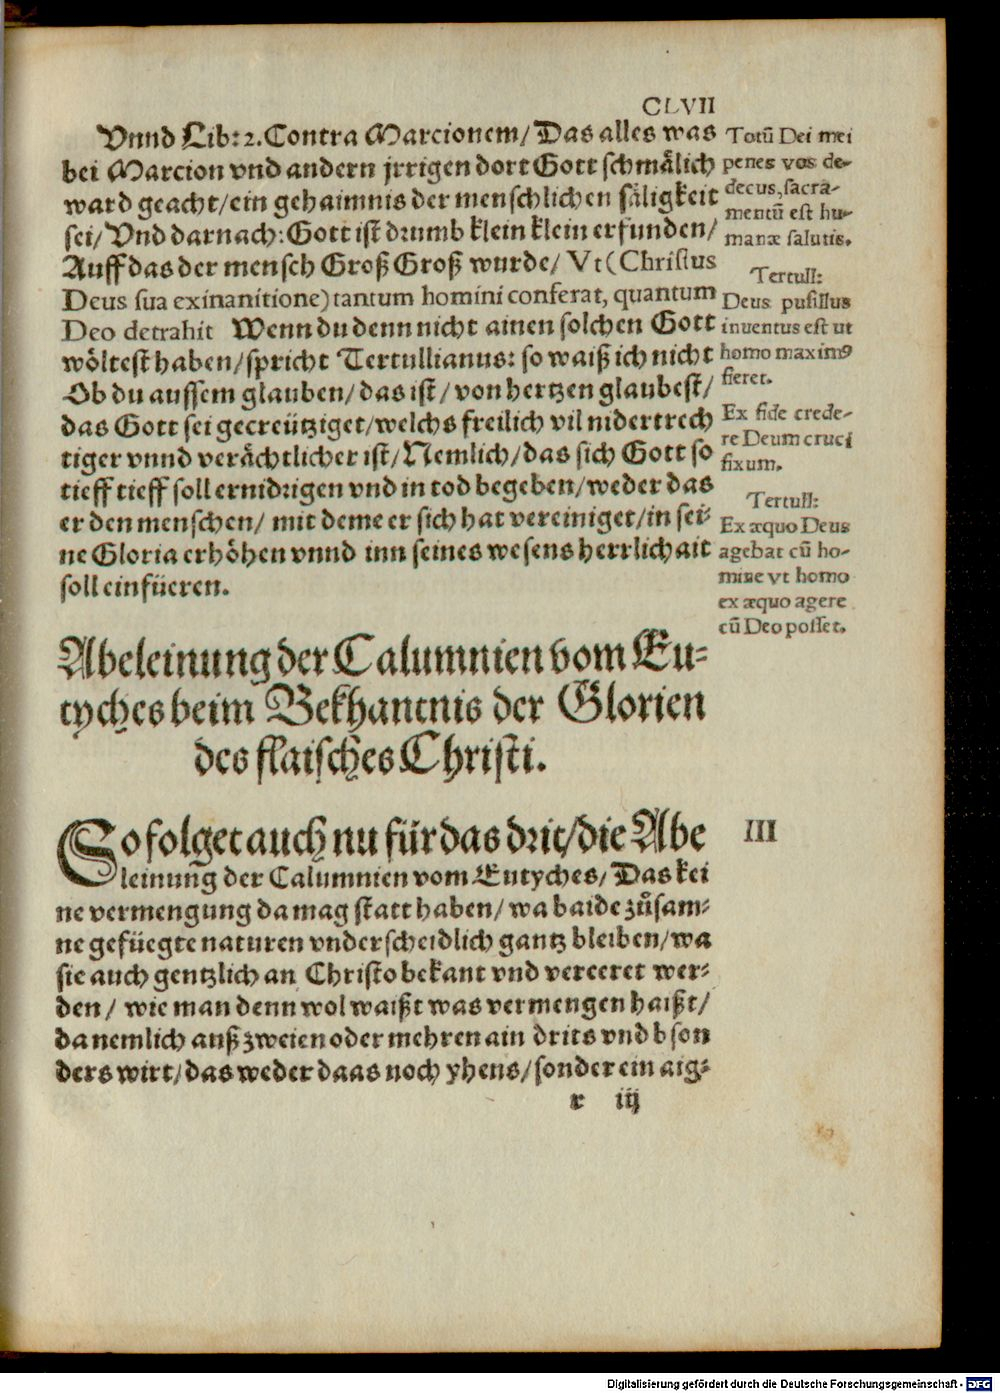 CLVII
Vnnd Lib: 2. Contra Marcionem/ Das alles was
bei Marcion vnd andern jrrigen dort Gott schmålich
ward geacht/ ein gehaimnis der menschlichen såligkeit
sei/ Vnd darnach: Gott ist drumb klein klein erfunden/
Auff das der mensch Groß Groß wurde/ Vt (Christus
Deus sua exinanitione) tantum homini conferat, quantum
Deo detrahit Wenn du denn nicht ainen solchen Gott
wöltest haben/ spricht Tertullianus: so waiß ich nicht
Ob du aussem glauben/ das ist/ von hertzen glaubest/
das Gott sei gecreütziget/ welchs freilich vil nidertrech
tiger vnnd veråchtlicher ist/ Nemlich/ das sich Gott so
tieff tieff soll ernidrigen vnd in tod begeben/ weder das
er den menschen/ mit deme er sich hat vereiniget/ in sei-
ne Gloria erhöhen vnnd inn seines wesens herrlichait
soll einfüeren.
Totū Dei mei
penes vos de-
decus, sacra-
mentū est hu-
manæ salutis.
Tertull:
Deus pusillus
inventus est ut
homo maximꝰ
fieret.
Ex fide crede-
re Deum cruci
fixum.
Tertull:
Ex æquo Deus
agebat cū ho-
mine vt homo
ex æquo agere
cū Deo posset.
Abeleinung der Calumnien vom Eu-
tyches beim Bekhantnis der Glorien
des flaisches Christi.
So folget auch nu für das drit/ die Abe
leinung der Calumnien vom Eutyches/ Das kei
ne vermengung da mag statt haben/ wa baide zůsam-
ne gefüegte naturen vnderscheidlich gantz bleiben/ wa
sie auch gentzlich an Christo bekant vnd vereeret wer-
den/ wie man denn wol waißt was vermengen haißt/
da nemlich auß zweien oder mehren ain drits vnd bson
ders wirt/ das weder daas noch yhens/ sonder ein aig-
III
r iij
Digitalisierung gefördert durch die Deutsche Forschungsgemeinschaft - DFG